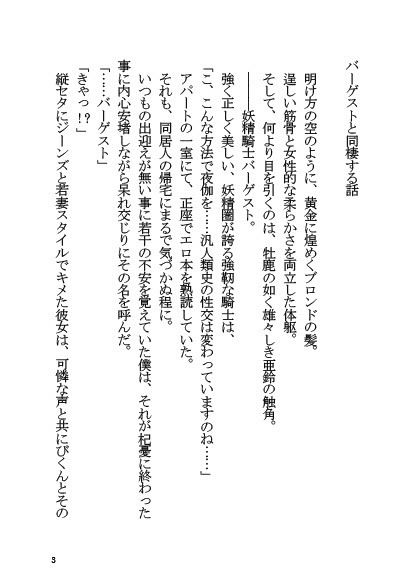 バーゲストと同棲する話
明け方の空のように、黄金に煌めくブロンドの髪。
逞しい筋骨と女性的な柔らかさを両立した体躯。
そして、何より目を引くのは、牡鹿の如く雄々しき亜鈴の触角。
――妖精騎士バーゲスト。
強く正しく美しい、妖精圏が誇る強靭な騎士は、
「こ、こんな方法で夜伽を……汎人類史の性交は変わっていますのね……」
アパートの一室にて、正座でエロ本を熟読していた。
それも、同居人の帰宅にまるで気づかぬ程に。
いつもの出迎えが無い事に若干の不安を覚えていた僕は、それが杞憂に終わった
事に内心安堵しながら呆れ交じりにその名を呼んだ。
「……バーゲスト」
「きゃっ!?」
縦セタにジーンズと若妻スタイルでキメた彼女は、可憐な声と共にびくんとその
3